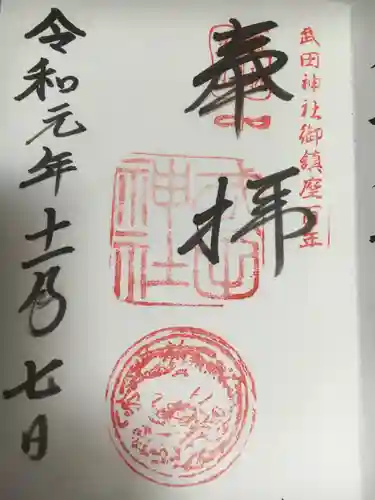 武田神社御鎮座百年
奉拝
武田神社
令和元年十一月七日